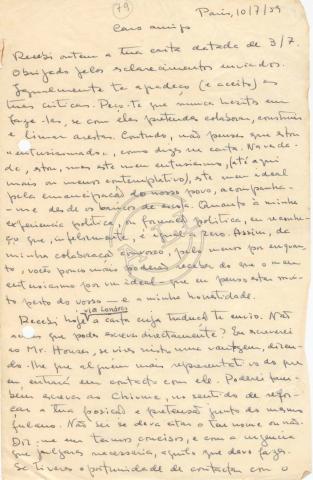 (79)
Paris, 10/7/59
Caro amigo
Recebi ontem a tua carta datada de 3/7.
Obrigado pelos esclarecimentos enviados.
Igualmente te agradeço (e aceito) as
tuas críticas. Peço-te que nunca hesites em
fazê-las, se com elas pretendes colaborar, construir
e limar arestas. Contudo, não penses que estou
"entusiasmado", como dizes na carta. Na verda-
de, estou, mas este meu entusiasmo, (até aqui
mais ou menos contemplativo), este meu ideal
pela emancipação do nosso povo, acompanha-
-me desde os bancos da escola. Quanto à minha
experiência política, ou formação política, eu reconhe-
ço que, infelizmente, é igual a zero. Assim, da
minha colaboração convosco, pelo menos por enquan-
to, vocês pouco mais poderão receber do que o meu
entusiasmo por um ideal que eu penso estar muito
perto do vosso — e a minha honestidade.
via Londres
Recebi hoje a carta cuja tradução te envio. Não
achas que podia escrever directamente? Eu escreverei
ao Mr. Houser, se vires nisto uma vantagem, dizen-
do-lhe que alguém mais representativo do que
eu, entrará em contacto com ele. Poderei tam-
bém escrever ao Chiume, no sentido de refor-
çar a tua posição e pretensão junto do mesmo
fulano. Não sei se devo citar o teu nome ou não.
Diz-me em termos concisos, e com a urgência
que julgares necessária, aquilo que devo fazer.
Se tiveres oportunidade de contactar com o